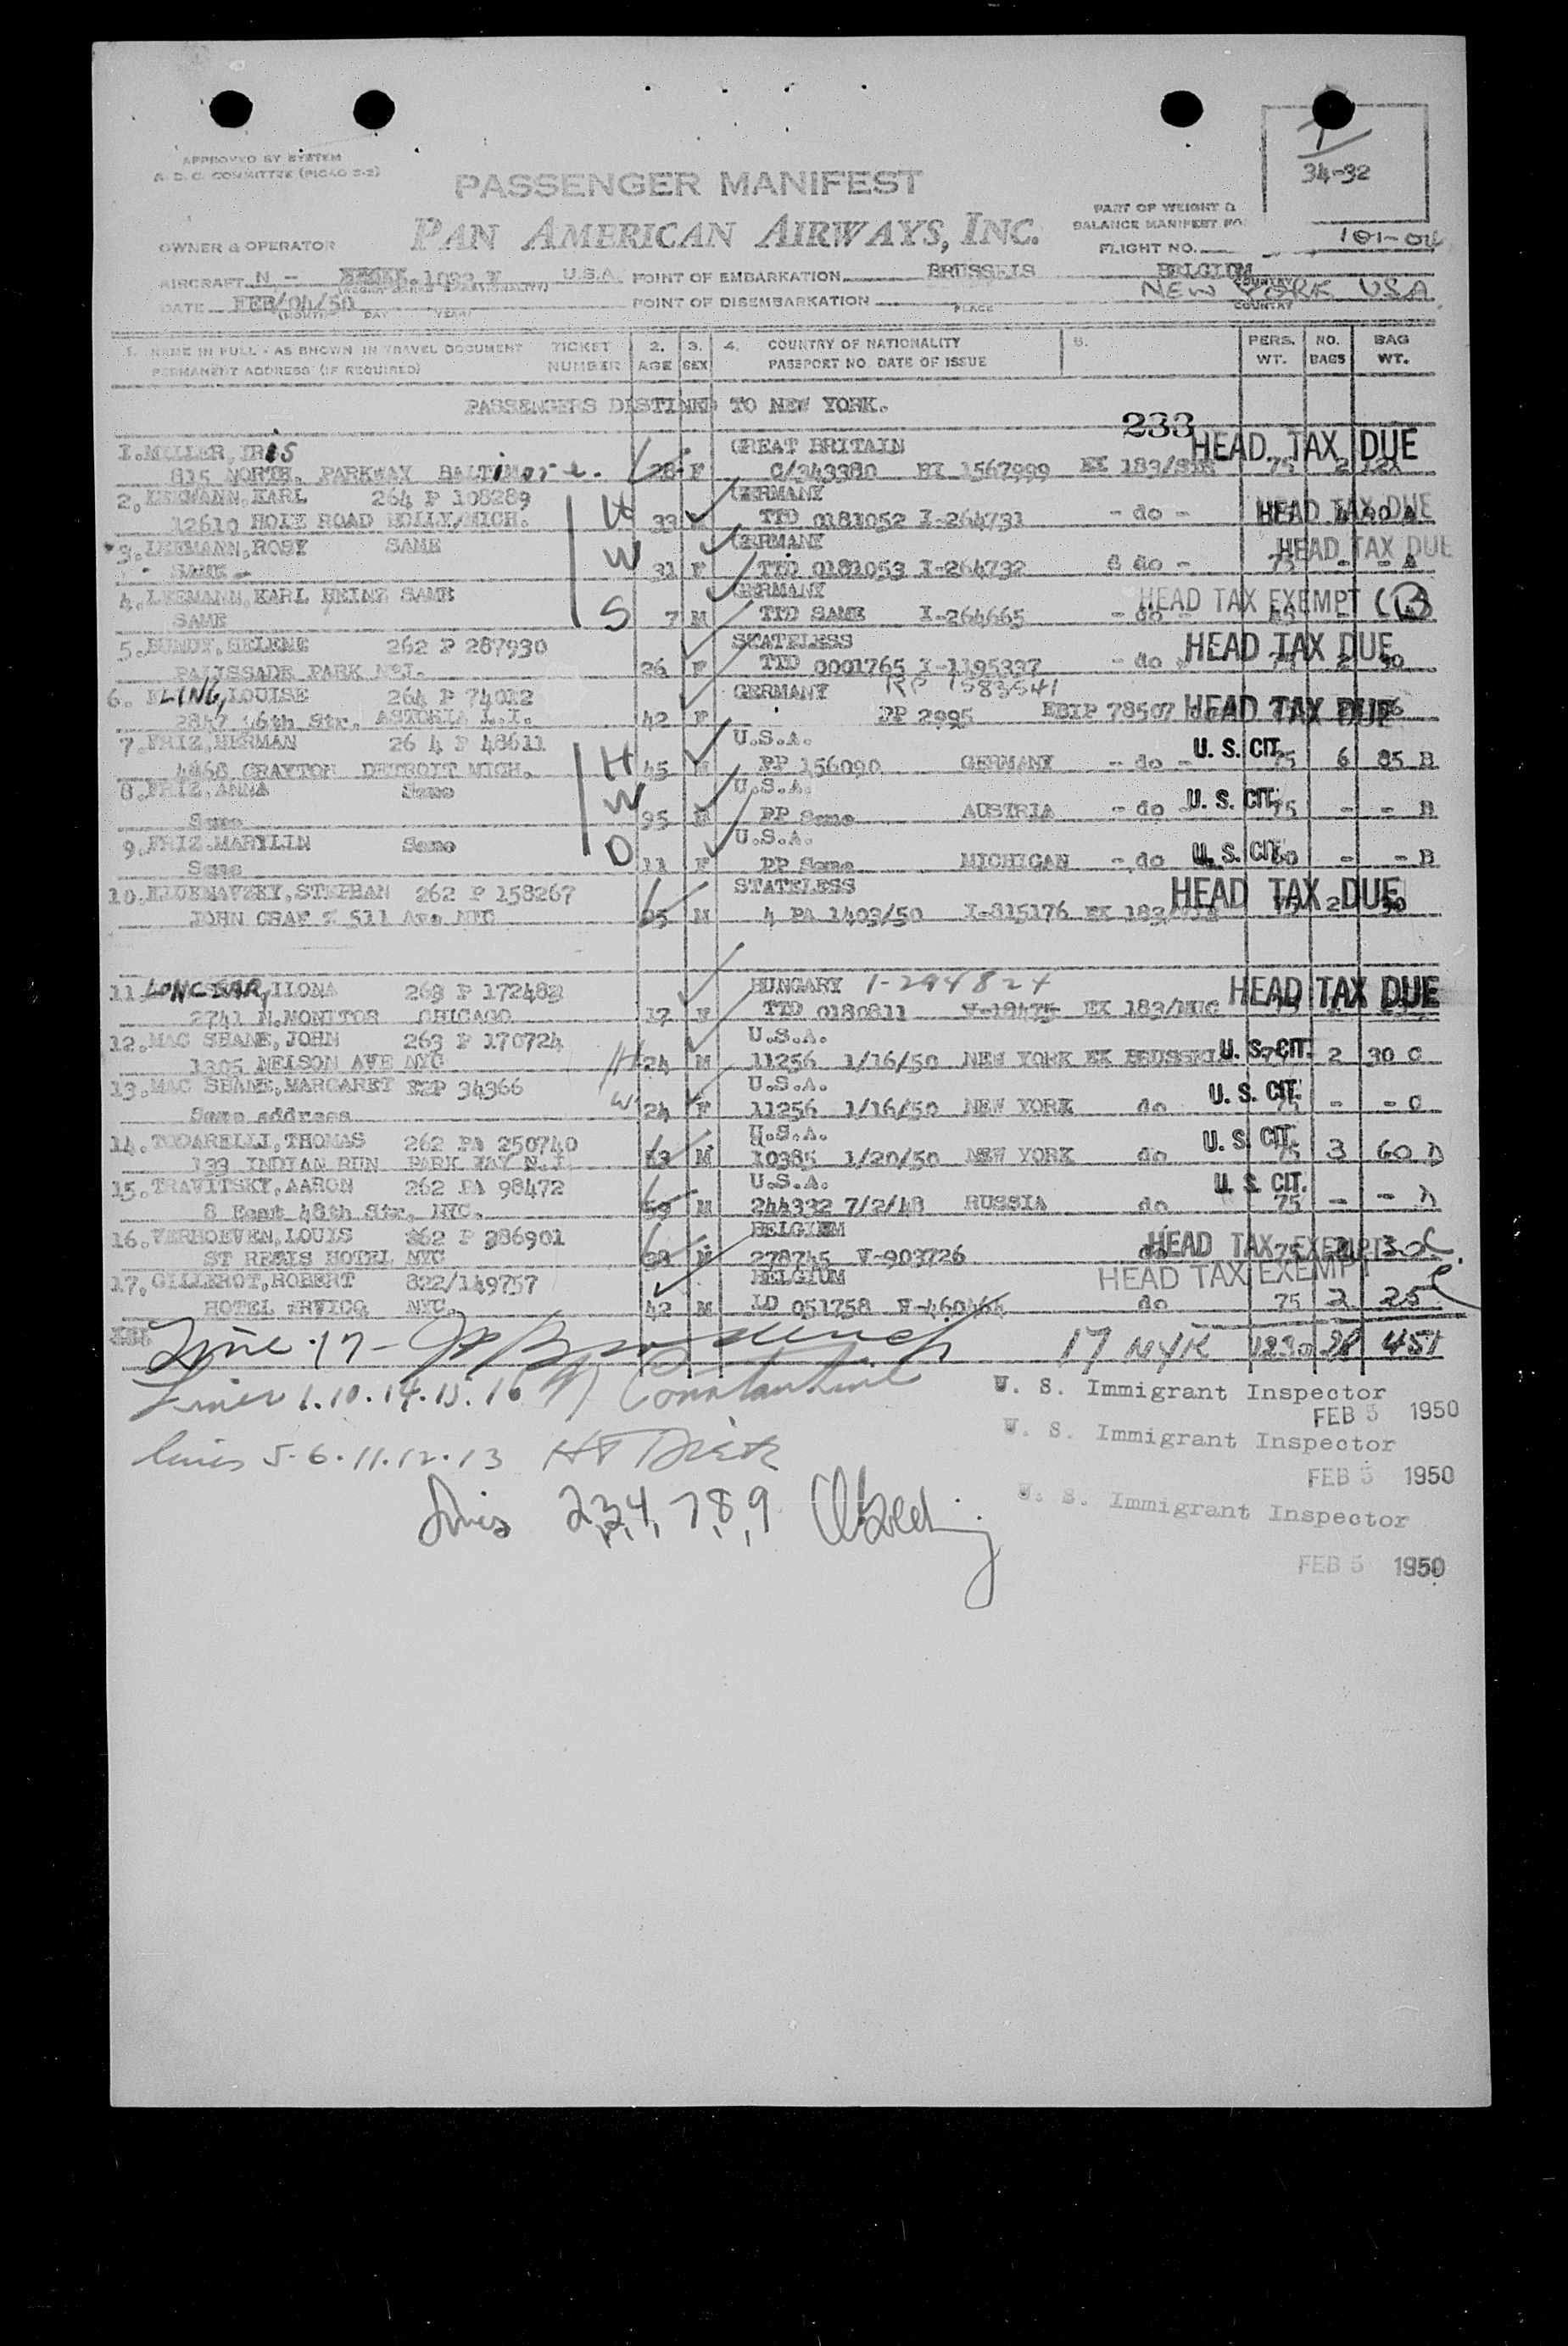 34-32
APPROVED BY SYSTEM
A. D. C. COMMITTEE (PICAO S-2)
PASSENGER MANIFEST
PART OF WEIGHT &
BALANCE MANIFEST NO.
OWNER & OPERATOR PAN AMERICAN AIRWAYS, INC.
FLIGHT NO. 101-04
AIRCRAFT N - U.S.A. POINT OF EMBARKATION BRUSSELS BELGIUM
COUNTRY
DATE FEB/04/50 POINT OF DISEMBARKATION NEW YORK USA
(MONTH DAY YEAR) PLACE COUNTRY
1. NAME IN FULL - AS SHOWN IN TRAVEL DOCUMENT TICKET 2. 3. 4. COUNTRY OF NATIONALITY PERS. NO. BAG
PERMANENT ADDRESS (IF REQUIRED) NUMBER AGE SEX PASSPORT NO. DATE OF ISSUE WT. BAGS WT.
PASSENGERS DISTINED TO NEW YORK.
233
1. MILLER, IRIS GREAT BRITAIN HEAD TAX DUE
815 NORTH. PARKWAY BALTIMore. 28 F C/343380 1567999 75 2
2. LEEMANN, KARL 264 P 108289 GERMANY
12610 ROAD HOLLY/MICH. H 33 M TTD 0181052 I-264731 - do - HEAD TAX DUE
3. LEEMANN, ROSY SAME GERMANY HEAD TAX DUE
- SAME - W 31 F TTD 0181053 I-264732 do - 75 - - A
4. LEEMANN, KARL HEINZ SAME GERMANY HEAD TAX EXEMPT
SAME S 7 M TTD SAME I-264665 - do -
5. HELENE 262 P 287930 STATELESS HEAD TAX DUE
PALISSADE PARK 26 F TTD 0001765 I-1195337 - do -
6. LOUISE 264 P 74012 GERMANY RP 1583541
2847 46th Str. ASTORIA L.I. 42 F PP 2995 78507 HEAD TAX DUE
7. FRIZ, HERMAN 26 4 P 48611 U.S.A. U. S. CIT.
4468 GRAYTON DETROIT MICH. H 45 M PP 156090 GERMANY - do - 75 6 85 B
8. FRIZ, ANNA Same U.S.A. U. S. CIT.
Same W 35 M PP Same AUSTRIA - do 75 - - B
9. FRIZ MARYLIN Same U.S.A.
Same D 11 F PP Same MICHIGAN - do U. S. CIT. - - B
10. STEPHAN 262 P 158267 STATELESS HEAD TAX DUE
JOHN GRAF 511 Ave NYC M 4 PA 1403/50 I-815176
11. LONCZAR, ILONA 263 P 172483 HUNGARY I-294824 HEAD TAX DUE
2741 N. MONITOR CHICAGO 17 F TTD 0180811 V-18475
12. MAC SHANE, JOHN 263 P 170724 U.S.A.
1305 NELSON AVE NYC H 24 M 11256 1/16/50 NEW YORK EX U. S. CIT. 2 30 C
13. MAC SHANE, MARGARET 34366 U.S.A. U. S. CIT.
Same address W 24 F 11256 1/16/50 NEW YORK do 75 - - C
14. TODARELLI, THOMAS 262 PA 250740 U.S.A. U. S. CIT.
133 INDIAN RUN PARK WAY N.J. 63 M 10385 1/20/50 NEW YORK do 75 3 60 D
15. TRAVITSKY, AARON 262 PA 98472 U.S.A. U. S. CIT.
8 East 48th Str, NYC. 59 M 244332 7/2/48 RUSSIA do 75 - - D
16. VERHOEVEN, LOUIS 262 P 386901 BELGIUM HEAD TAX EXEMPT
ST REGIS HOTEL NYC 28 M 278745 V-903726 do 75
17. GILLEROT, ROBERT 822/149757 BELGIUM HEAD TAX EXEMPT
HOTEL NYC. 42 M LD 051758 V-460464 do 75 2 25
Line 17 - 17 NYK 28 451
Lines 1.10.14.15.16 Constantine U. S. Immigrant Inspector
FEB 5 1950
U. S. Immigrant Inspector
lines 5-6.11.12.13
FEB 5 1950
lines 2,3,4, 7,8,9 U. S. Immigrant Inspector
FEB 5 1950